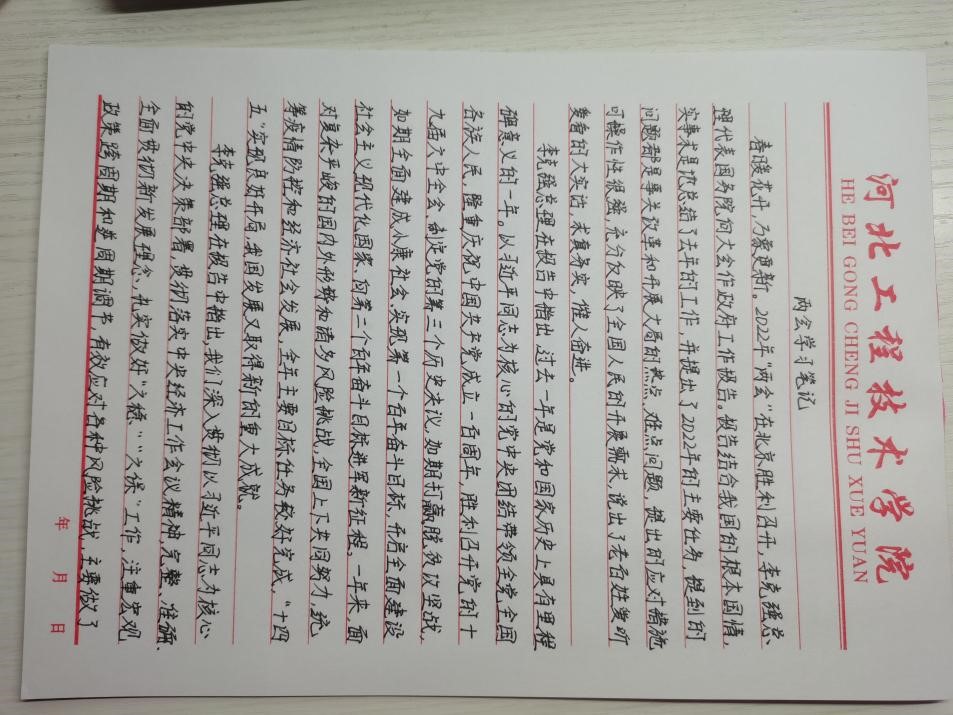 河北工程技术学院
HE BEI GONG CHENG JI SHU XUE YUAN
两会学习笔记
春暖花开,万象更新。2022年“两会”在北京胜利召开,李克强总
理代表国务院向大会作政府工作报告。报告结合我国的根本国情,
实事求是地总结了去年的工作,并提出了2022年的主要任务,提到的
问题都是事关改革和开展大局的热点、难点问题,提出的应对措施
可操作性很强,充分反映了全国人民的开展需求,说出了老百姓想听
爱看的大实话,求真务实,催人奋进。
李克强总理在报告中指出,过去一年是党和国家历史上具有里程
碑意义的一年。以习近平同志为核心的党中央团结带领全党全国
各族人民,隆重庆祝中国共产党成立一百周年,胜利召开党的十
九届六中全会、制定党的第三个历史决议,如期打赢脱贫攻坚战,
如期全面建成小康社会、实现第一个百年奋斗目标,开启全面建设
社会主义现代化国家、向第二个百年奋斗目标进军新征程。一年来,面
对复杂严峻的国内外形势和诸多风险挑战,全国上下共同努力,统
筹疫情防控和经济社会发展,全年主要目标任务较好完成,“十四
五”实现良好开局,我国发展又取得新的重大成就。
李克强总理在报告中指出,我们深入贯彻以习近平同志为核心
的党中央决策部署,贯彻落实中央经济工作会议精神,完整、准确、
全面贯彻新发展理念,扎实做好“六稳”、“六保”工作,注重宏观
政策跨周期和逆周期调节,有效应对各种风险挑战,主要做了
年 月 日